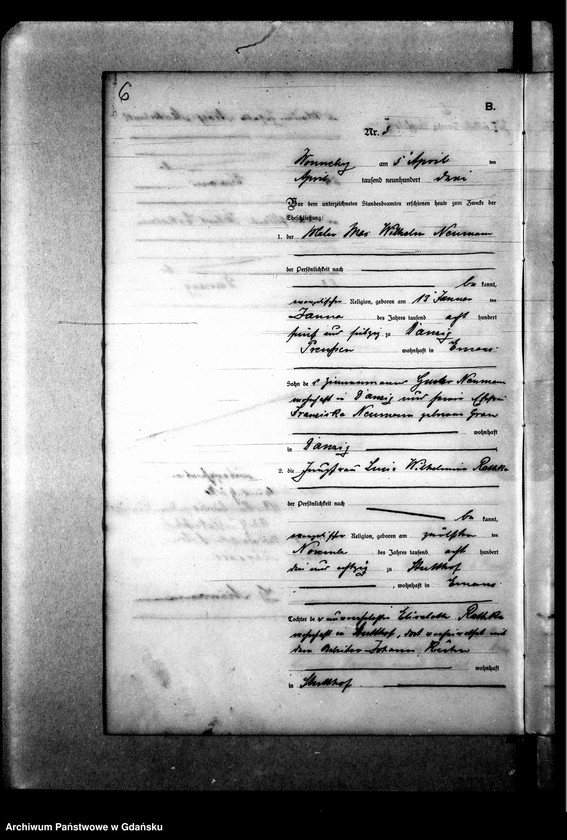 6
B.
Nr. 5
Wonneberg am 5 April ten
April tausend neunhundert drei
Vor dem unterzeichneten Standesbeamten erschienen heute zum Zwecke der
Eheschließung:
1. der Maler Max Wilhelm Neumann
der Persönlichkeit nach
be kannt,
evangelischer Religion, geboren am 13 Januar ten
Januar des Jahres tausend acht hundert
fünf und siebzig zu Danzig
Preußen wohnhaft in Emaus
Sohn des Zimmermanns Gustav Neumann
wohnhaft in Danzig und seiner Ehefrau
Franziska Neumann geborenen
wohnhaft
in Danzig
2. die Jungfrau Wilhelmine Rathke
der Persönlichkeit nach
be kannt,
evangelischer Religion, geboren am zwölften ten
November des Jahres tausend acht hundert
drei und achtzig zu Stutthof
, wohnhaft in Emaus
Tochter der unverehelichten Elisabeth Rathke
wohnhaft in Stutthof, dort verheirathet mit
dem Arbeiter Johann
wohnhaft
in Stutthof
Archiwum Państwowe w Gdańsku